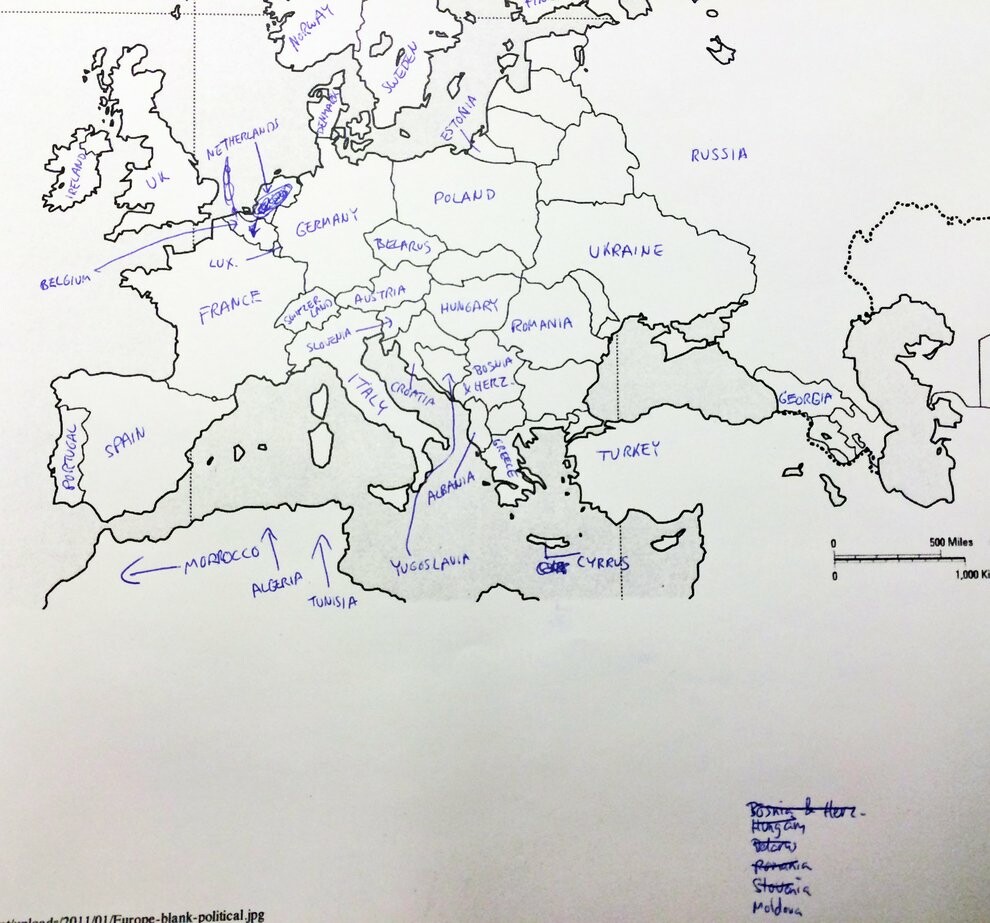 NORWAY
SWEDEN
DENMARK
ESTONIA
NETHERLANDS
IRELAND
UK
RUSSIA
POLAND
GERMANY
BELARUS
UKRAINE
BELGIUM
LUX.
FRANCE
SWITZER
LAND
AUSTRIA
HUNGARY
SLOVENIA
ROMANIA
BOSNIA
& HERZ.
ITALY
CROATIA
GEORGIA
PORTUGAL
SPAIN
GREECE
TURKEY
ALBANIA
0 500 Miles
0 1,000 Ki
MORROCCO
ALGERIA
TUNISIA
YUGOSLAVIA
CYRRUS
Bosnia & Herz.
Hungary
Belarus
Romania
Slovenia
Moldova
uploads/2011/01/Europe-blank-political.jpg